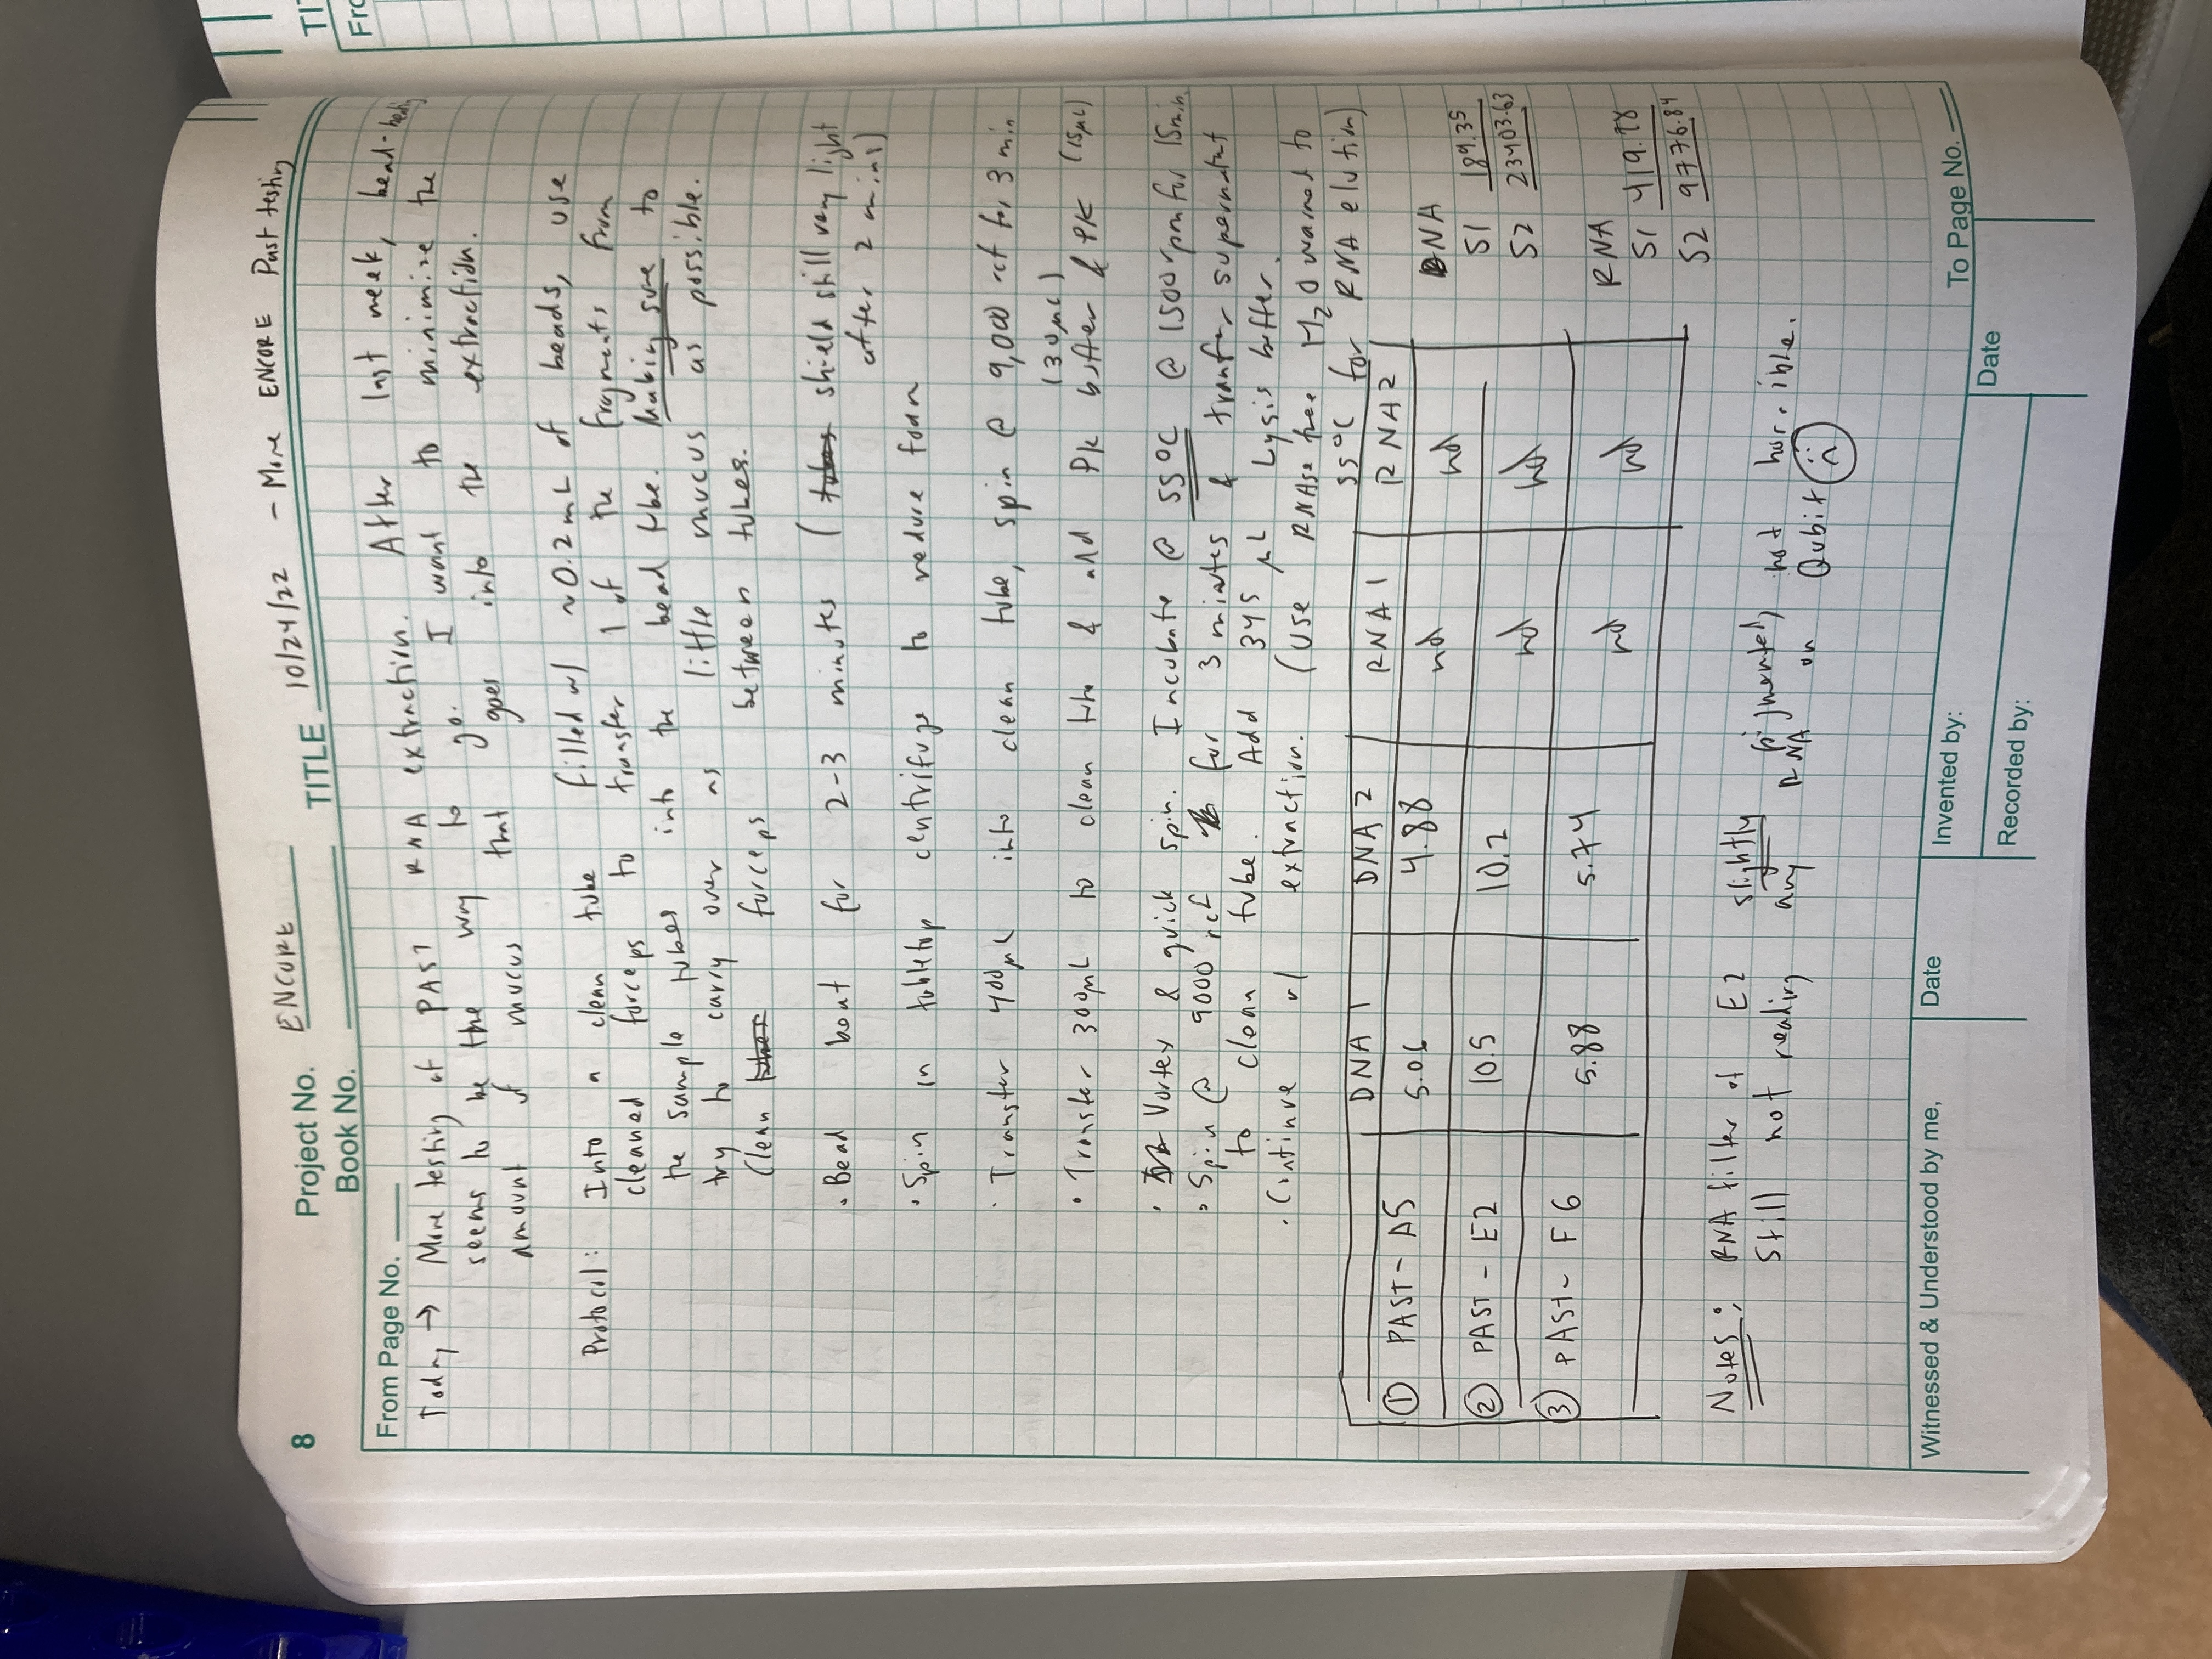 8
Project No. ENCORE
Book No.
TITLE 10/24/22 - More ENCORE Past testing
From Page No.
Today → More testing of PAST RNA extraction. After last week, bead-beating
seems to be the way to go. I want to minimize the
amount of mucus that goes into the extraction.
Protocol: Into a clean tube filled w/ ~0.2mL of beads, use
cleaned forceps to transfer 1 of the fragments from
the sample tubes into the bead tube. Making sure to
try to carry over as little mucus as possible.
Clean forceps between tubes.
• Bead beat for 2-3 minutes (shield still very light
after 2 mins)
• Spin in tabletop centrifuge to reduce foam
• Transfer 400µL into clean tube, spin @ 9,000 rcf for 3 min
(30µL)
• Transfer 300µL to clean tube & add PK buffer & PK (15µL)
• Vortex & quick spin. Incubate @ 55°C @ 1500rpm for 15min.
• Spin @ 9000 rcf for 3 mintes & tranfer supernatut
to clean tube. Add 345 µL Lysis buffer.
• Continue w/ extraction. (Use RNAse free H2O warmed to
55°C for RNA elution)
DNA 1 DNA 2 RNA 1 RNA 2
① PAST - A5 5.06 4.88 nd nd
② PAST - E2 10.5 10.2 nd nd
③ PAST - F6 5.88 5.74 nd nd
DNA
S1 189.35
S2 23403.63
RNA
S1 419.78
S2 9776.84
Notes: RNA filter of E2 slightly pigmented, not horrible.
Still not reading any RNA on Qubit
Witnessed & Understood by me,
Date
Invented by:
Recorded by:
Date
To Page No.
TI
Fro